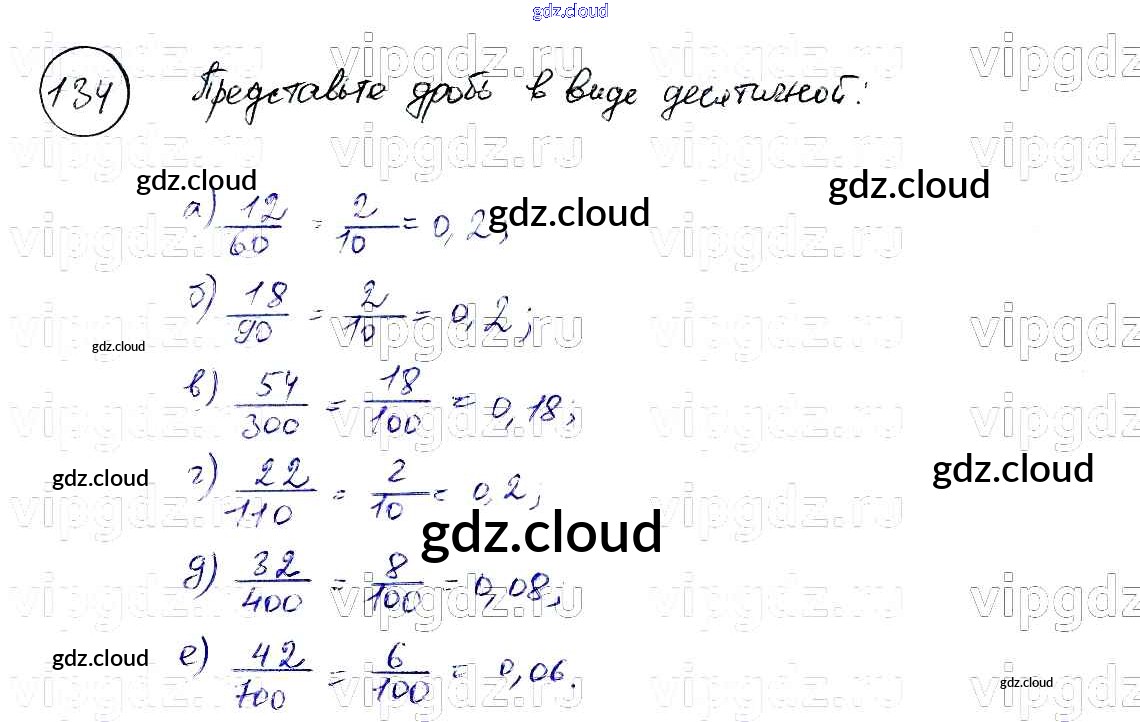 gdz.cloud
134 Представьте дробь в виде десятичной:
gdz.cloud gdz.cloud
а) 12/60 = 2/10 = 0,2; gdz.cloud
б) 18/90 = 2/10 = 0,2;
gdz.cloud
в) 54/300 = 18/100 = 0,18;
gdz.cloud gdz.cloud
г) 22/110 = 2/10 = 0,2;
gdz.cloud
д) 32/400 = 8/100 = 0,08;
gdz.cloud
е) 42/700 = 6/100 = 0,06.
gdz.cloud
vipgdz.ru vipgdz.ru vipgdz.ru vipgdz